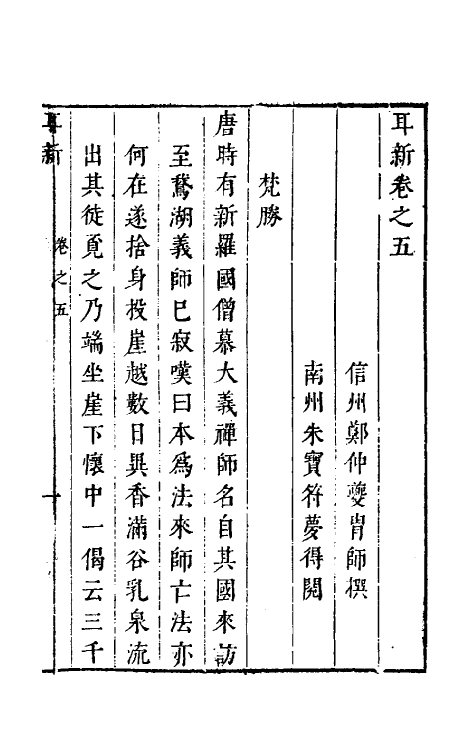 耳新卷之五
信州鄭仲夔胄師撰
南州朱寶符夢得閱
梵勝
唐時有新羅國僧慕大義禪師名自其國來訪
至鵞湖義師已寂嘆曰本爲法來師亡法亦
何在遂捨身投崖越數日異香滿谷乳泉流
出其徒覔之乃端坐崖下懷中一偈云三千
耳新
卷之五
一